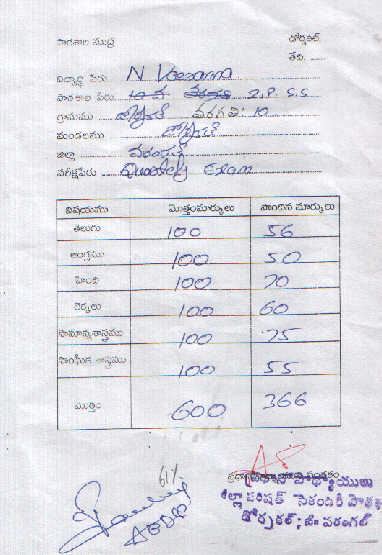 పాఠశాల ముద్ర డోర్నకల్
తేది. ......
విద్యార్థి పేరు N Veeranna
పాఠశాల పేరు Z.P.S.S
గ్రామము డోర్నకల్ తరగతి: 10
మండలము డోర్నకల్
జిల్లా వరంగల్
పరీక్షపేరు Quarterly Exam
విషయము మొత్తంమార్కులు పొందిన మార్కులు
తెలుగు 100 56
ఆంగ్లము 100 50
హింది 100 70
లెక్కలు 100 60
సామాన్యశాస్త్రము 100 75
సాంఘీక శాస్త్రము 100 55
మొత్తం 600 366
61%
ప్రధానోపాధ్యాయులు
జిల్లా పరిషత్ సెకండరీ పాఠశాల
డోర్నకల్, జి॥ వరంగల్